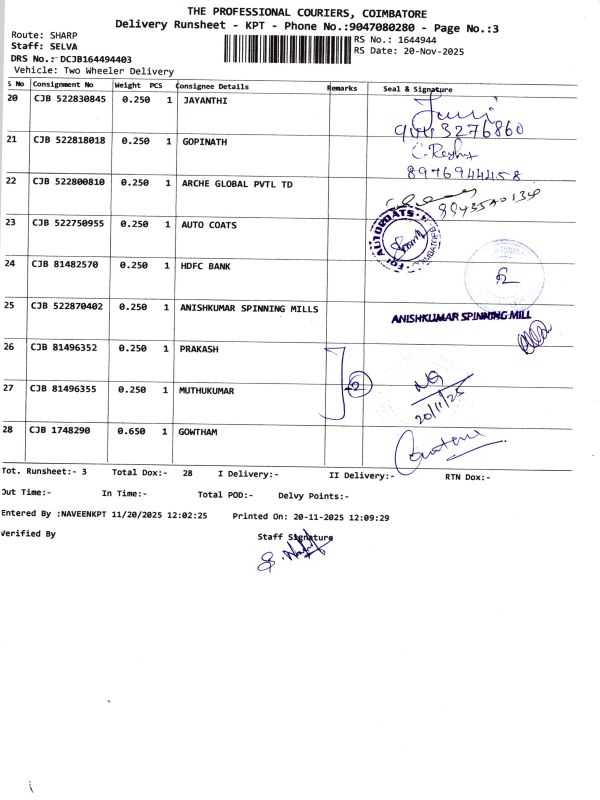 THE PROFESSIONAL COURIERS, COIMBATORE
Delivery Runsheet - KPT - Phone No.:9047080280 - Page No.:3
Route: SHARP
Staff: SELVA
DRS No.: DCJB164494403
Vehicle: Two Wheeler Delivery
RS No.: 1644944
RS Date: 20-Nov-2025
S No Consignment No Weight PCS Consignee Details Remarks Seal & Signature
20 CJB 522830845 0.250 1 JAYANTHI
9443276860
21 CJB 522818018 0.250 1 GOPINATH
8976944458
22 CJB 522800810 0.250 1 ARCHE GLOBAL PVTL TD
23 CJB 522750955 0.250 1 AUTO COATS
24 CJB 81482570 0.250 1 HDFC BANK
25 CJB 522870402 0.250 1 ANISHKUMAR SPINNING MILLS
ANISHKUMAR SPINNING MILL
26 CJB 81496352 0.250 1 PRAKASH
27 CJB 81496355 0.250 1 MUTHUKUMAR
20/11/25
28 CJB 1748290 0.650 1 GOWTHAM
Tot. Runsheet:- 3 Total Dox:- 28 I Delivery:- II Delivery:- RTN Dox:-
Out Time:- In Time:- Total POD:- Delvy Points:-
Entered By :NAVEENKPT 11/20/2025 12:02:25 Printed On: 20-11-2025 12:09:29
Verified By Staff Signature